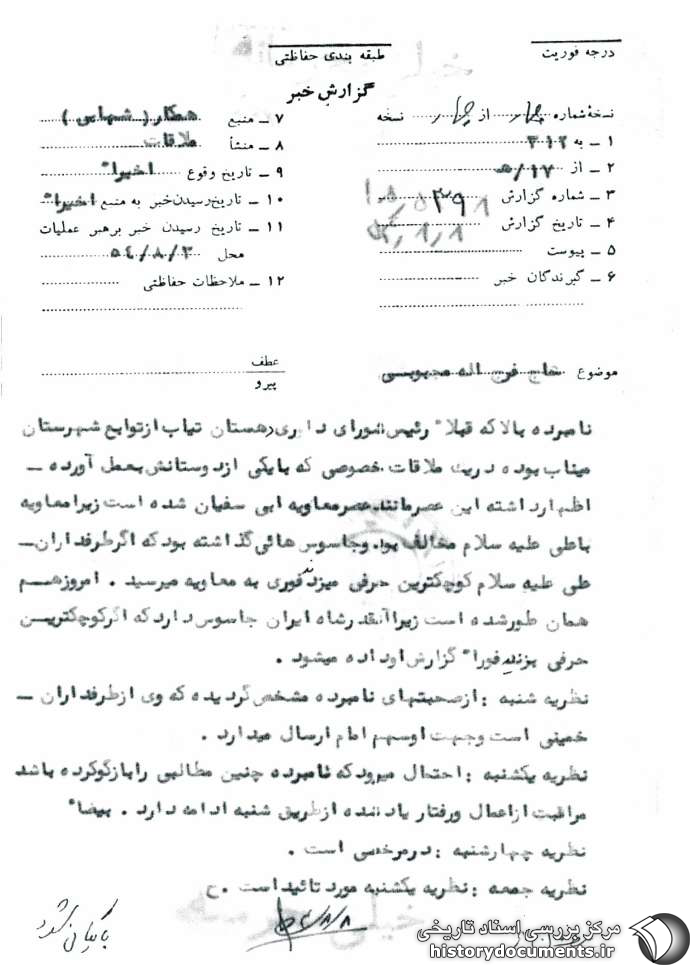 درجه فوریت
طبقه بندی حفاظتی
گزارش خبر
نسخهٔ شماره چهار از چهار نسخه
۱ ــ به ۳۱۲
۲ ــ از ۵/۱۷
۳ ــ شماره گزارش
۴ ــ تاریخ گزارش
۵ ــ پیوست
۶ ــ گیرندگان خبر
۷ ــ منبع همکار (شهابی)
۸ ــ منشأ ملاقات
۹ ــ تاریخ وقوع اخیرا"
۱۰ ــ تاریخ رسیدن خبر به منبع اخیرا"
۱۱ ــ تاریخ رسیدن خبر برهبر عملیات
محل ۵۴/۸/۳
۱۲ ــ ملاحظات حفاظتی
موضوع حاج فرج اله
عطف
پیرو
نامبرده بالا که قبلا" رئیس شورای داوری دهستان تیاب از توابع شهرستان
میناب بوده در یک ملاقات خصوصی که با یکی از دوستانش بعمل آورده ــ
اظهار داشته این عصر مانند عصر معاویه ابی سفیان شده است زیرا معاویه
با علی علیه سلام مخالف بود و جاسوس هائی گذاشته بود که اگر طرفداران ــ
علی علیه سلام کوچکترین حرفی میزدند فوری به معاویه میرسید . امروز هــم
همان طور شده است زیرا آنقدر شاه ایران جاسوس دارد که اگر کوچکتریــن
حرفی بزنید فورا" گزارش او داده میشود .
نظریه شنبه : از صحبتهای نامبرده مشخص گردیده که وی از طرفداران ــ
خمینی است وجهت او سهم امام ارسال میدارد .
نظریه یکشنبه : احتمال میرود که نامبرده چنین مطالبی را بازگو کرده باشد
مراقبت از اعمال و رفتار یاد شده از طریق شنبه ادامه دارد . بیضا"
نظریه چهارشنبه : در مرخصی است .
نظریه جمعه : نظریه یکشنبه مورد تائید است . ح
بایگانی شود
مرکز بررسی اسناد تاریخی
historydocuments.ir